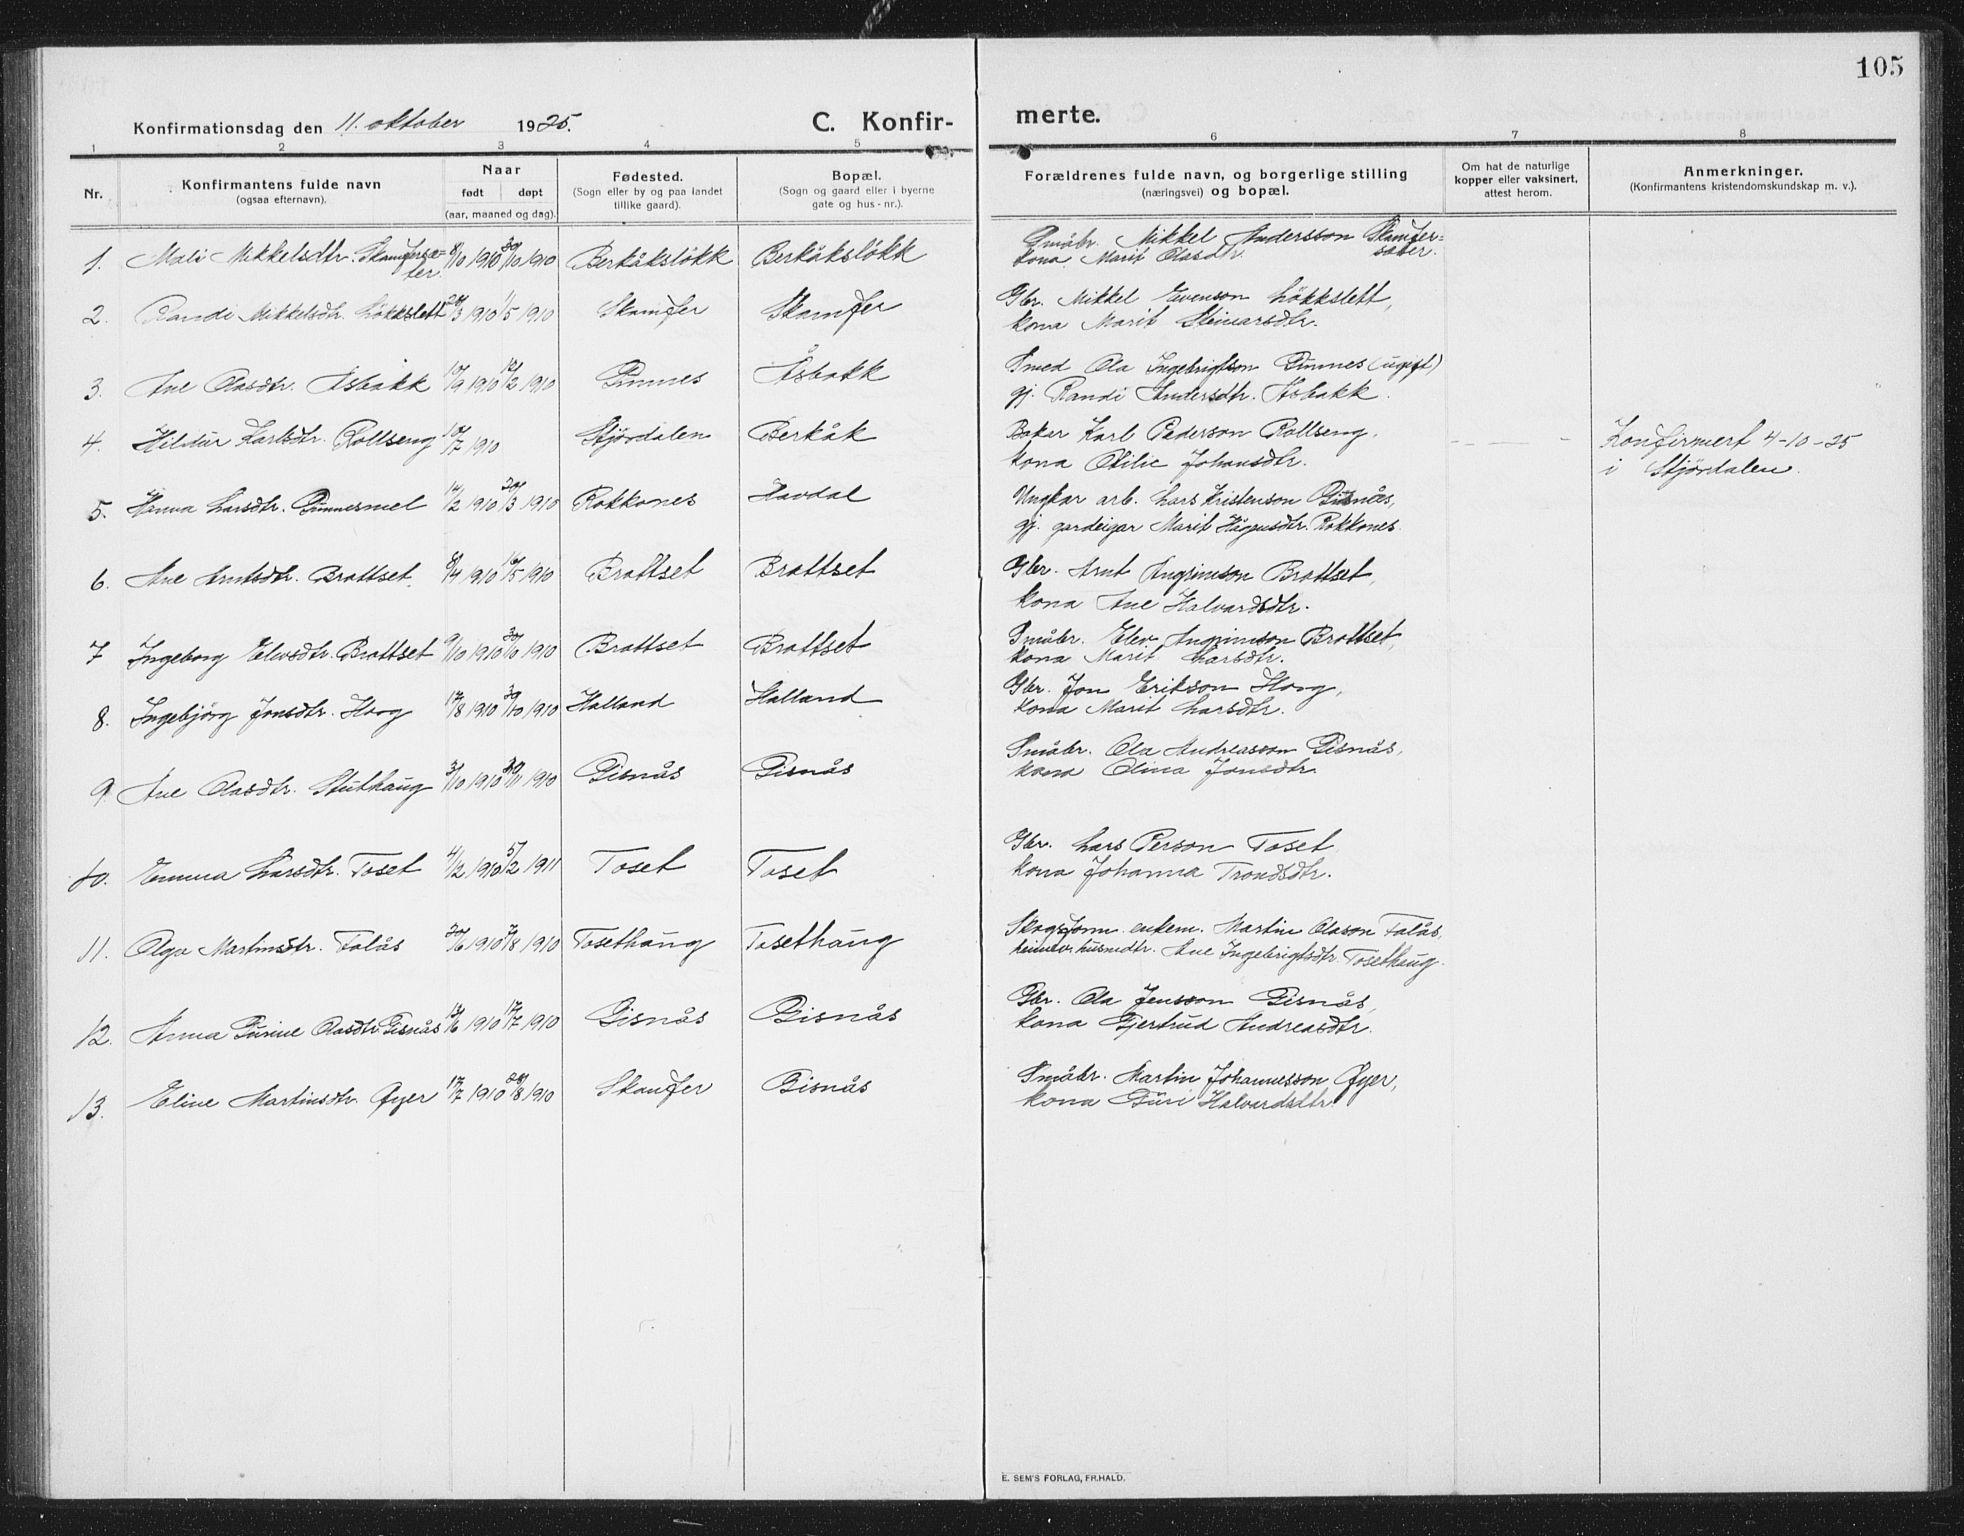 105
Konfirmationsdag den 11. oktober 1925. C. Konfirmerte.
1 2 3 4 5 6 7 8
Nr. Konfirmantens fulde navn (ogsaa efternavn). Naar født døpt (aar, maaned og dag). Fødested. (Sogn eller by og paa landet tillike gaard). Bopæl. (Sogn og gaard eller i byerne gate og hus-nr.). Forældrenes fulde navn, og borgerlige stilling (næringsvei) og bopæl. Om hat de naturlige kopper eller vaksinert, attest herom. Anmerkninger. (Konfirmantens kristendomskundskap m. v.).
1. Mali Mikkelsdtr. Skamfersæter 8/10 1910 30/10 1910 Berkåksløkk Berkåksløkk Småbr. Mikkel Andersson Skamfersæter.
kona Marit Olasdtr.
2. Randi Mikkelsdtr. Løkkslett 20/3 1910 1/5 1910 Skamfer Skamfer Gbr. Mikkel Evenson Løkkslett,
kona Marit Steinarsdtr.
3. Ane Olasdtr. Åsbakk 10/9 1910 12/12 1910 Gunnes Åsbakk Smed Ola Ingebrigtson Gunnes (ugift)
gj. Randi Andersdtr. Åsbakk.
4. Hildur Karlsdtr. Rollseng 10/7 1910 Stjördalen Berkåk Baker Karl Pederson Rollseng,
kona Otilie Johansdtr.
Konfirmert 4-10-25
i Stjördalen.
5. Hanna Larsdtr. Gunnesmel 14/2 1910 20/3 1910 Rokkones Havdal Ungkar arb. Lars Kristenson Gisnås,
gj. gardeigar Marit Hågensdtr. Rokkones.
6. Ane Arntsdtr. Brattset 8/4 1910 16/5 1910 Brattset Brattset Gbr. Arnt Angrimson Brattset,
kona Ane Halvardsdtr.
7 Ingeborg Elevsdtr. Brattset 9/10 1910 30/10 1910 Brattset Brattset Småbr. Elev Angrimson Brattset,
kona Marit Larsdtr.
8. Ingebjörg Jonsdtr. Hoog 17/8 1910 30/10 1910 Halland Halland Gbr. Jon Erikson Hoog,
kona Marit Larsdtr.
9 Ane Olasdtr. Stuthaug 3/10 1910 30/11 1910 Gisnås Gisnås Småbr. Ola Andreasson Gisnås,
kona Olina Jonsdtr.
10. Emma Larsdtr. Toset 4/12 1910 5/2 1911 Toset Toset Gbr. Lars Person Toset
kona Johanna Trondsdtr.
11. Olga Martinsdtr. Falås 20/6 1910 7/8 1910 Tosethaug Tosethaug Skogsform. enkem. Martin Olason Falås,
husmdtr. Ane Ingebrigtsdtr. Tosethaug.
12. Anna Gurine Olasdtr. Gisnås 12/6 1910 17/7 1910 Gisnås Gisnås Gbr. Ola Jensson Gisnås,
kona Gjertrud Andreasdtr.
13. Eline Martinsdtr. Øyer 17/7 1910 28/8 1910 Skamfer Gisnås Småbr. Martin Johannesson Øyer,
kona Guri Halvardsdtr.
E. SEM'S FORLAG, FR.HALD.